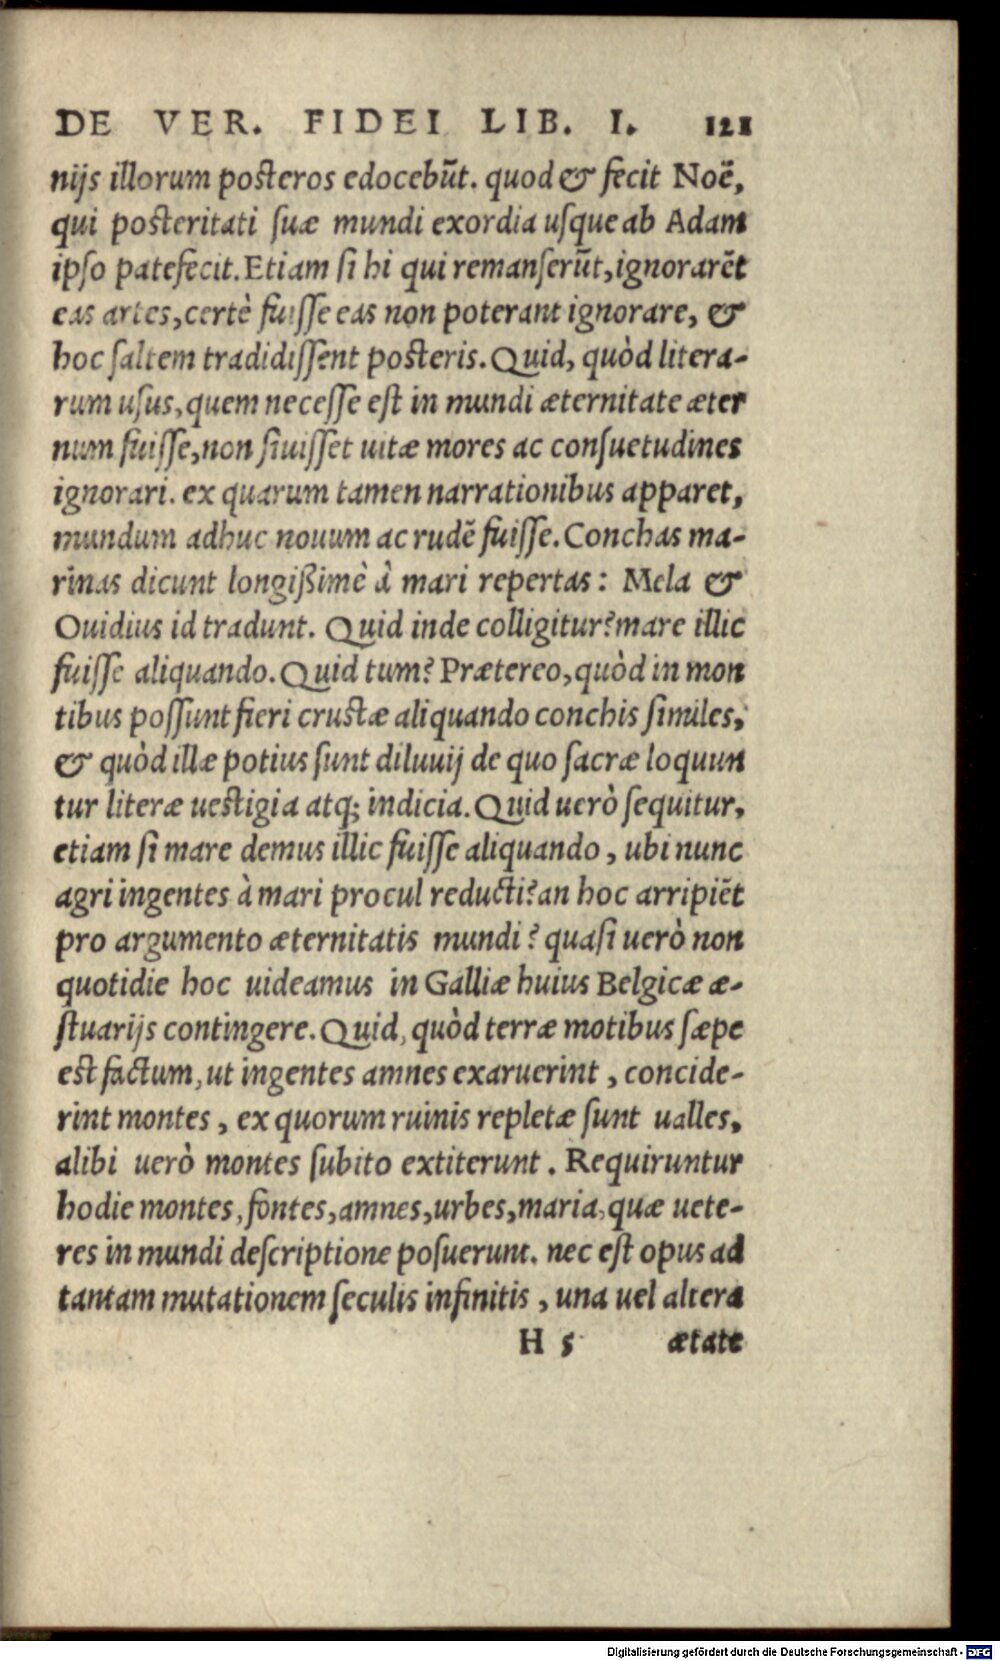 DE VER. FIDEI LIB. I. 121
nijs illorum posteros edocebūt. quod & fecit Noē,
qui posteritati suæ mundi exordia usque ab Adam
ipso patefecit. Etiam si hi qui remanserūt, ignorarēt
eas artes, certè fuisse eas non poterant ignorare, &
hoc saltem tradidissent posteris. Quid, quòd litera-
rum usus, quem necesse est in mundi æternitate æter
num fuisse, non siuisset uitæ mores ac consuetudines
ignorari. ex quarum tamen narrationibus apparet,
mundum adhuc nouum ac rudē fuisse. Conchas ma-
rinas dicunt longißimè à mari repertas: Mela &
Ouidius id tradunt. Quid inde colligitur? mare illic
fuisse aliquando. Quid tum? Prætereo, quòd in mon
tibus possunt fieri crustæ aliquando conchis similes,
& quòd illæ potius sunt diluuij de quo sacræ loquun
tur literæ uestigia atq; indicia. Quid uerò sequitur,
etiam si mare demus illic fuisse aliquando, ubi nunc
agri ingentes à mari procul reducti? an hoc arripiēt
pro argumento æternitatis mundi? quasi uerò non
quotidie hoc uideamus in Galliæ huius Belgicæ æ-
stuarijs contingere. Quid, quòd terræ motibus sæpe
est factum, ut ingentes amnes exaruerint, concide-
rint montes, ex quorum ruinis repletæ sunt ualles,
alibi uerò montes subito extiterunt. Requiruntur
hodie montes, fontes, amnes, urbes, maria, quæ uete-
res in mundi descriptione posuerunt. nec est opus ad
tantam mutationem seculis infinitis, una uel altera
H 5 ætate
Digitalisierung gefördert durch die Deutsche Forschungsgemeinschaft - DFG